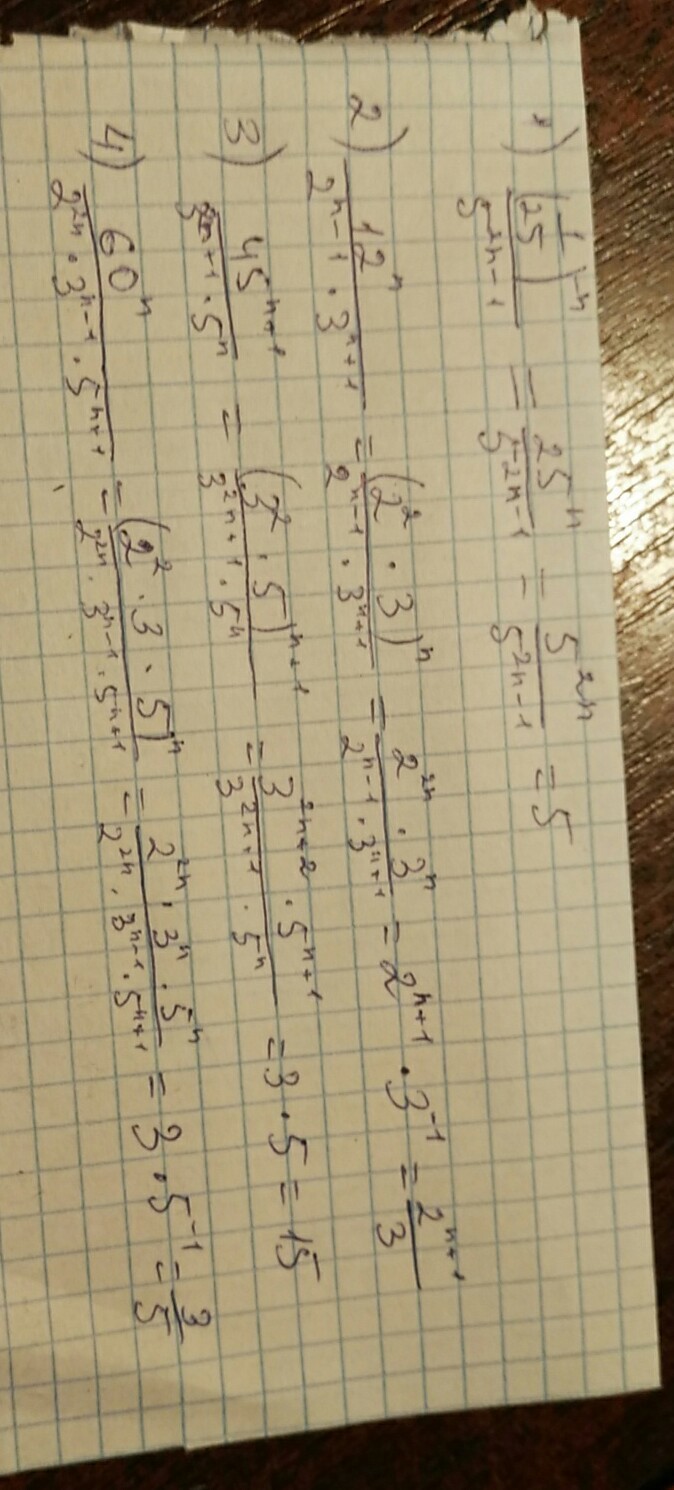 1) (1/25)^-n / 5^2n-1 = 25^n / 5^2n-1 = 5^2n / 5^2n-1 = 5
2) 12^n / 2^n-1 · 3^n+1 = (2^2 · 3)^n / 2^n-1 · 3^n+1 = 2^2n · 3^n / 2^n-1 · 3^n+1 = 2^n+1 · 3^-1 = 2^n+1 / 3
3) 45^n+1 / 3^2n+1 · 5^n = (3^2 · 5)^n+1 / 3^2n+1 · 5^n = 3^2n+2 · 5^n+1 / 3^2n+1 · 5^n = 3 · 5 = 15
4) 60^n / 2^2n · 3^n-1 · 5^n+1 = (2^2 · 3 · 5)^n / 2^2n · 3^n-1 · 5^n+1 = 2^2n · 3^n · 5^n / 2^2n · 3^n-1 · 5^n+1 = 3 · 5^-1 = 3/5